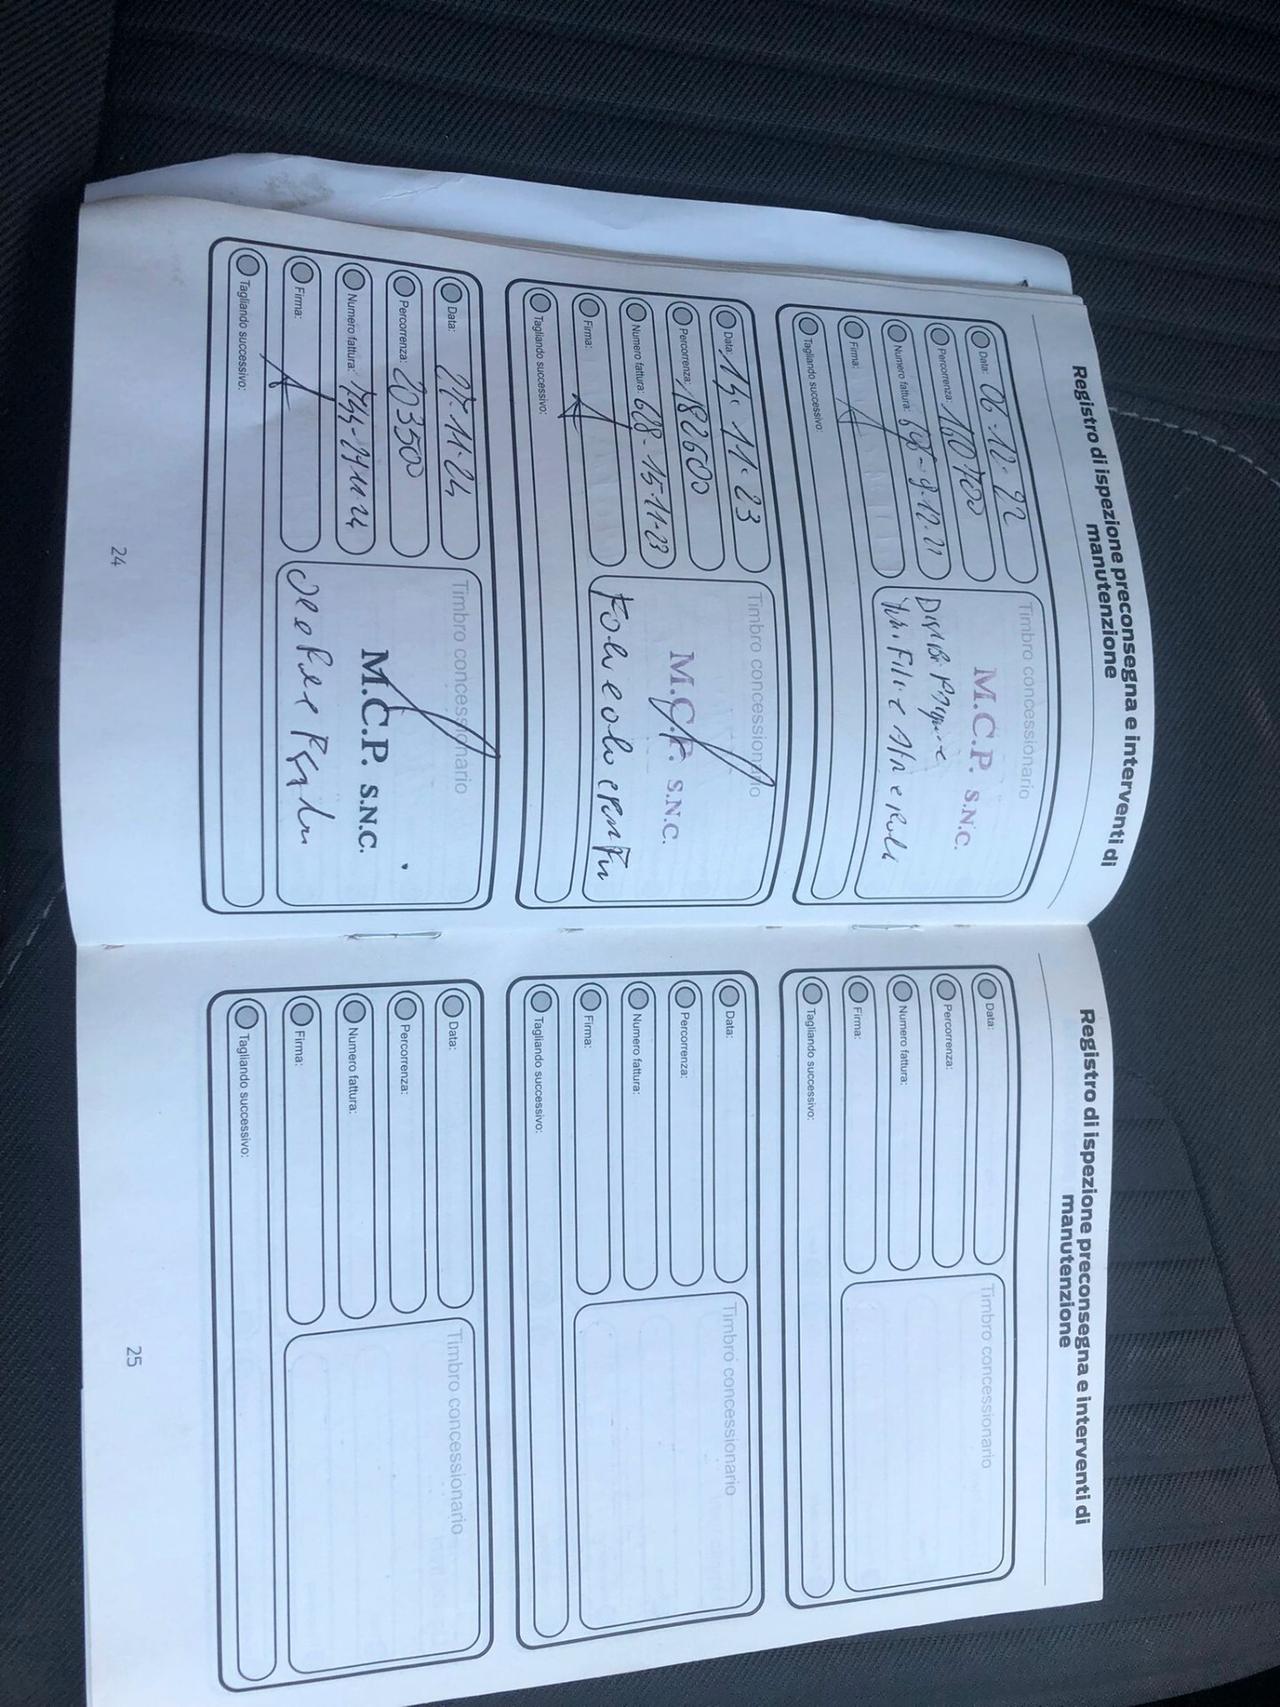 Registro di ispezione preconsegna e interventi di
manutenzione
Data: 06-12-22
Percorrenza: 160700
Numero fattura: 9-12-22
Firma:
Tagliando successivo:
Timbro concessionario
M.C.P. S.N.C.
Data: 14.11.23
Percorrenza: 182600
Numero fattura: 648-15-11-23
Firma:
Tagliando successivo:
Timbro concessionario
M.C.P. S.N.C.
Data: 27.11.24
Percorrenza: 203500
Numero fattura: 744-27-11-24
Firma:
Tagliando successivo:
Timbro concessionario
M.C.P. S.N.C.
24
Registro di ispezione preconsegna e interventi di
manutenzione
Data:
Percorrenza:
Numero fattura:
Firma:
Tagliando successivo:
Timbro concessionario
Data:
Percorrenza:
Numero fattura:
Firma:
Tagliando successivo:
Timbro concessionario
Data:
Percorrenza:
Numero fattura:
Firma:
Tagliando successivo:
Timbro concessionario
25